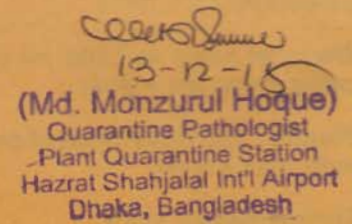 13-12-15
(Md. Monzurul Hoque)
Quarantine Pathologist
Plant Quarantine Station
Hazrat Shahjalal Int'l Airport
Dhaka, Bangladesh